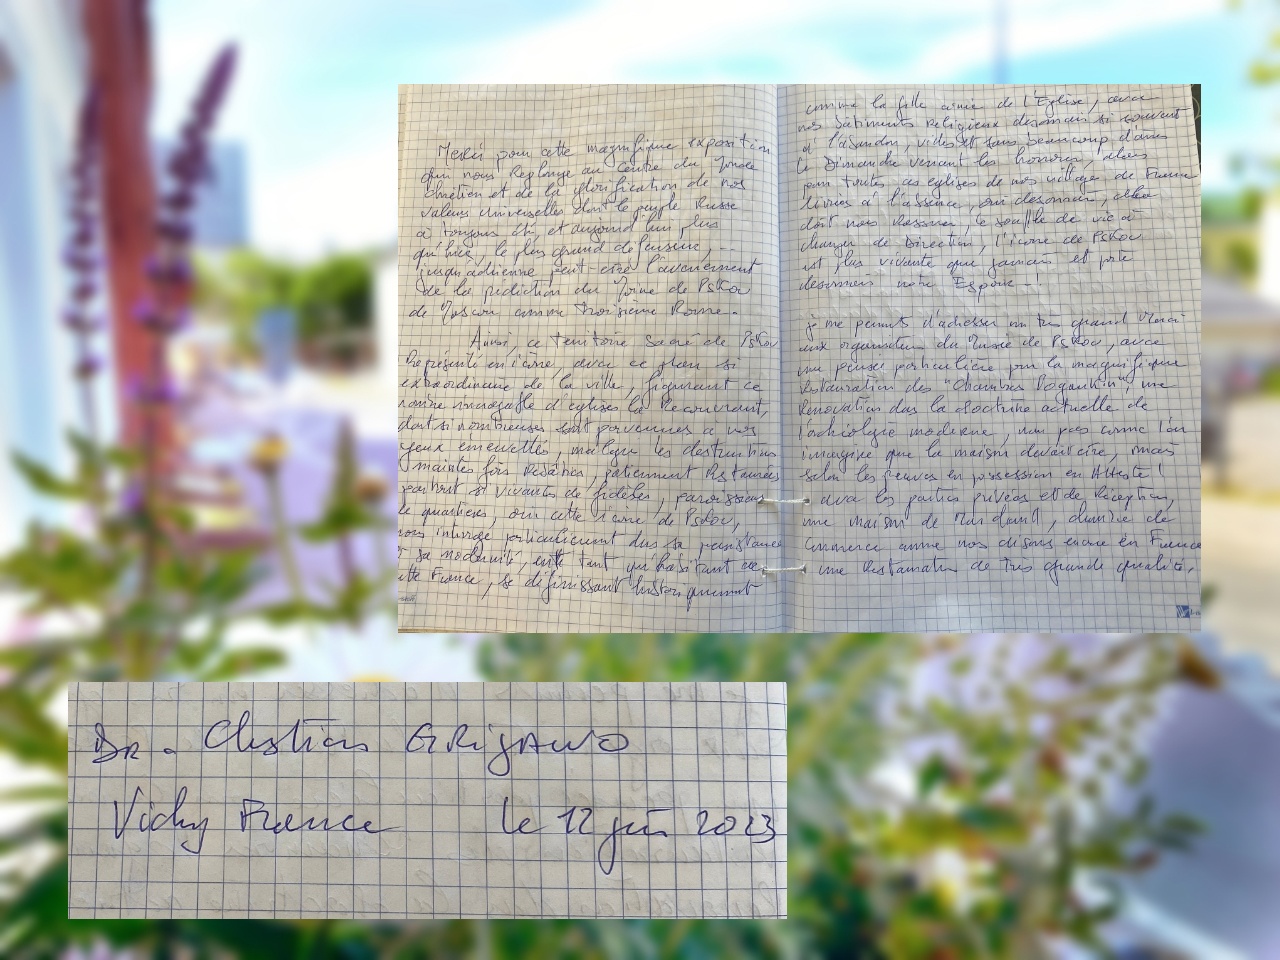 Merci pour cette magnifique exposition
qui nous Replonge au Centre du Monde
Chrétien et de la glorification de nos
valeurs Universelles dont le peuple Russe
a toujours été, et aujourd'hui plus
qu'hier, le plus grand défenseur, --
jusqu'adienne peut-être l'avenement
de la prédiction du Moine de PsKov
de Moscou comme Troisième Rome.
Ainsi, ce territoire Sacré de PsKov
Représenté en icône, avec ce plan si
extraordinaire de la ville, figurant ce
nombre incroyable d'églises la Recouvrant,
dont si nombreuses sont parvenues à nos
yeux émerveillés, malgré les destructions
maintes fois Répétées, patiemment Restaurées
et si vivantes de fidèles, paroissiens
de quartiers, oui cette icône de PsKov,
nous interroge particulièrement dans sa persistance
et sa modernité, en tant qu'habitant de
cette France, se définissant historiquement
comme la fille aînée de l'Église, avec
nos bâtiments Religieux désormais si souvent
à l'abandon, vides et sans beaucoup d'âmes
le Dimanche venant les honorer, alors
pour toutes ces églises de nos villages de France
livrées à l'absence, oui désormais, elle
doit nous Rassurer, le souffle de vie a
changé de Direction, l'icône de PsKov
est plus vivante que jamais et porte
désormais notre Espoir --!
je me permets d'adresser un très grand Merci
aux organisateurs du Musée de PsKov, avec
une pensée particulière pour la magnifique
Restauration des "Chambres Pogankin", une
Rénovation dans la doctrine actuelle de
l'archéologie moderne, non pas comme l'on
imagine que la maison devait être, mais
selon les preuves en possession en Atteste!
avec les parties privées et de Réception,
une maison de Marchand,
Commerce comme nous disons encore en France
une Restauration de Très grande qualité.
Dr. Christian GRIGANO
Vichy France le 12 juin 2023